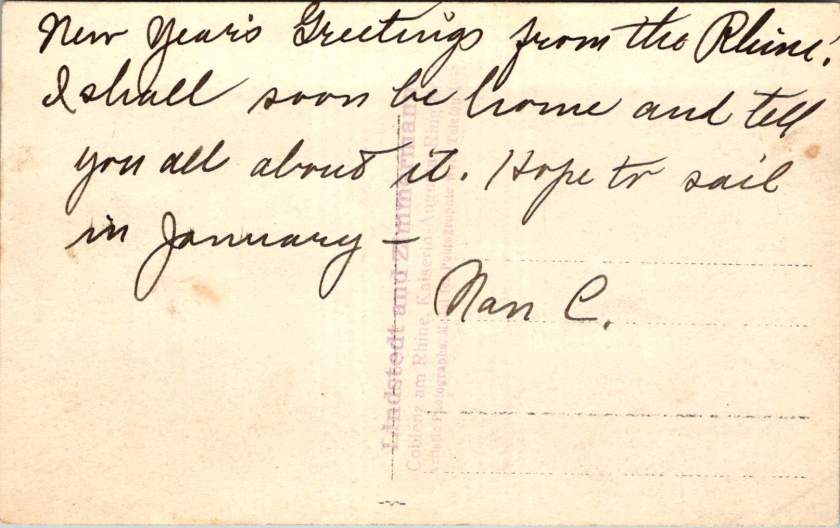 New Year's Greetings from the Rhine!
I shall soon be home and tell
you all about it. Hope to sail
in January —
Nan C.
Lindstedt and Zimmermann
Coblenz am Rhine, Kaiserin Augusta Ring
Artistic Photographs,